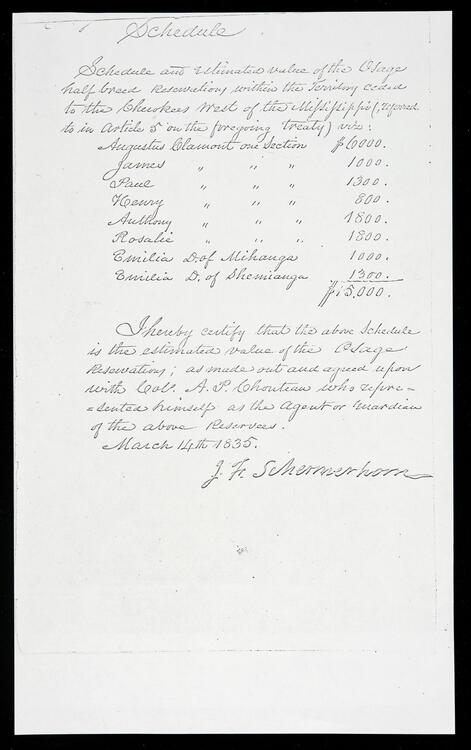 Schedule
Schedule and Estimated value of the Osage
half breed Reservations within the Territory ceded
to the Cherokees West of the Mississippi (, referred
to in Article 5 on the foregoing treaty) viz:
Augustus Clamont one Section $6000.
James " " " 1000.
Paul " " " 1300.
Henry " " " 800.
Anthony " " " 1800.
Rosalie " " " 1800.
Emilia D. of Mihanga 1000.
Emilia D. of Shemianga 1300.
$15,000.
I hereby certify that the above Schedule
is the estimated value of the Osage
Reservations; as made out and agreed upon
with Col. A. P. Chouteau who repre=
=sented himself as the Agent or Guardian
of the above Reserves.
March 14th 1835.
J. F. Schermerhorn